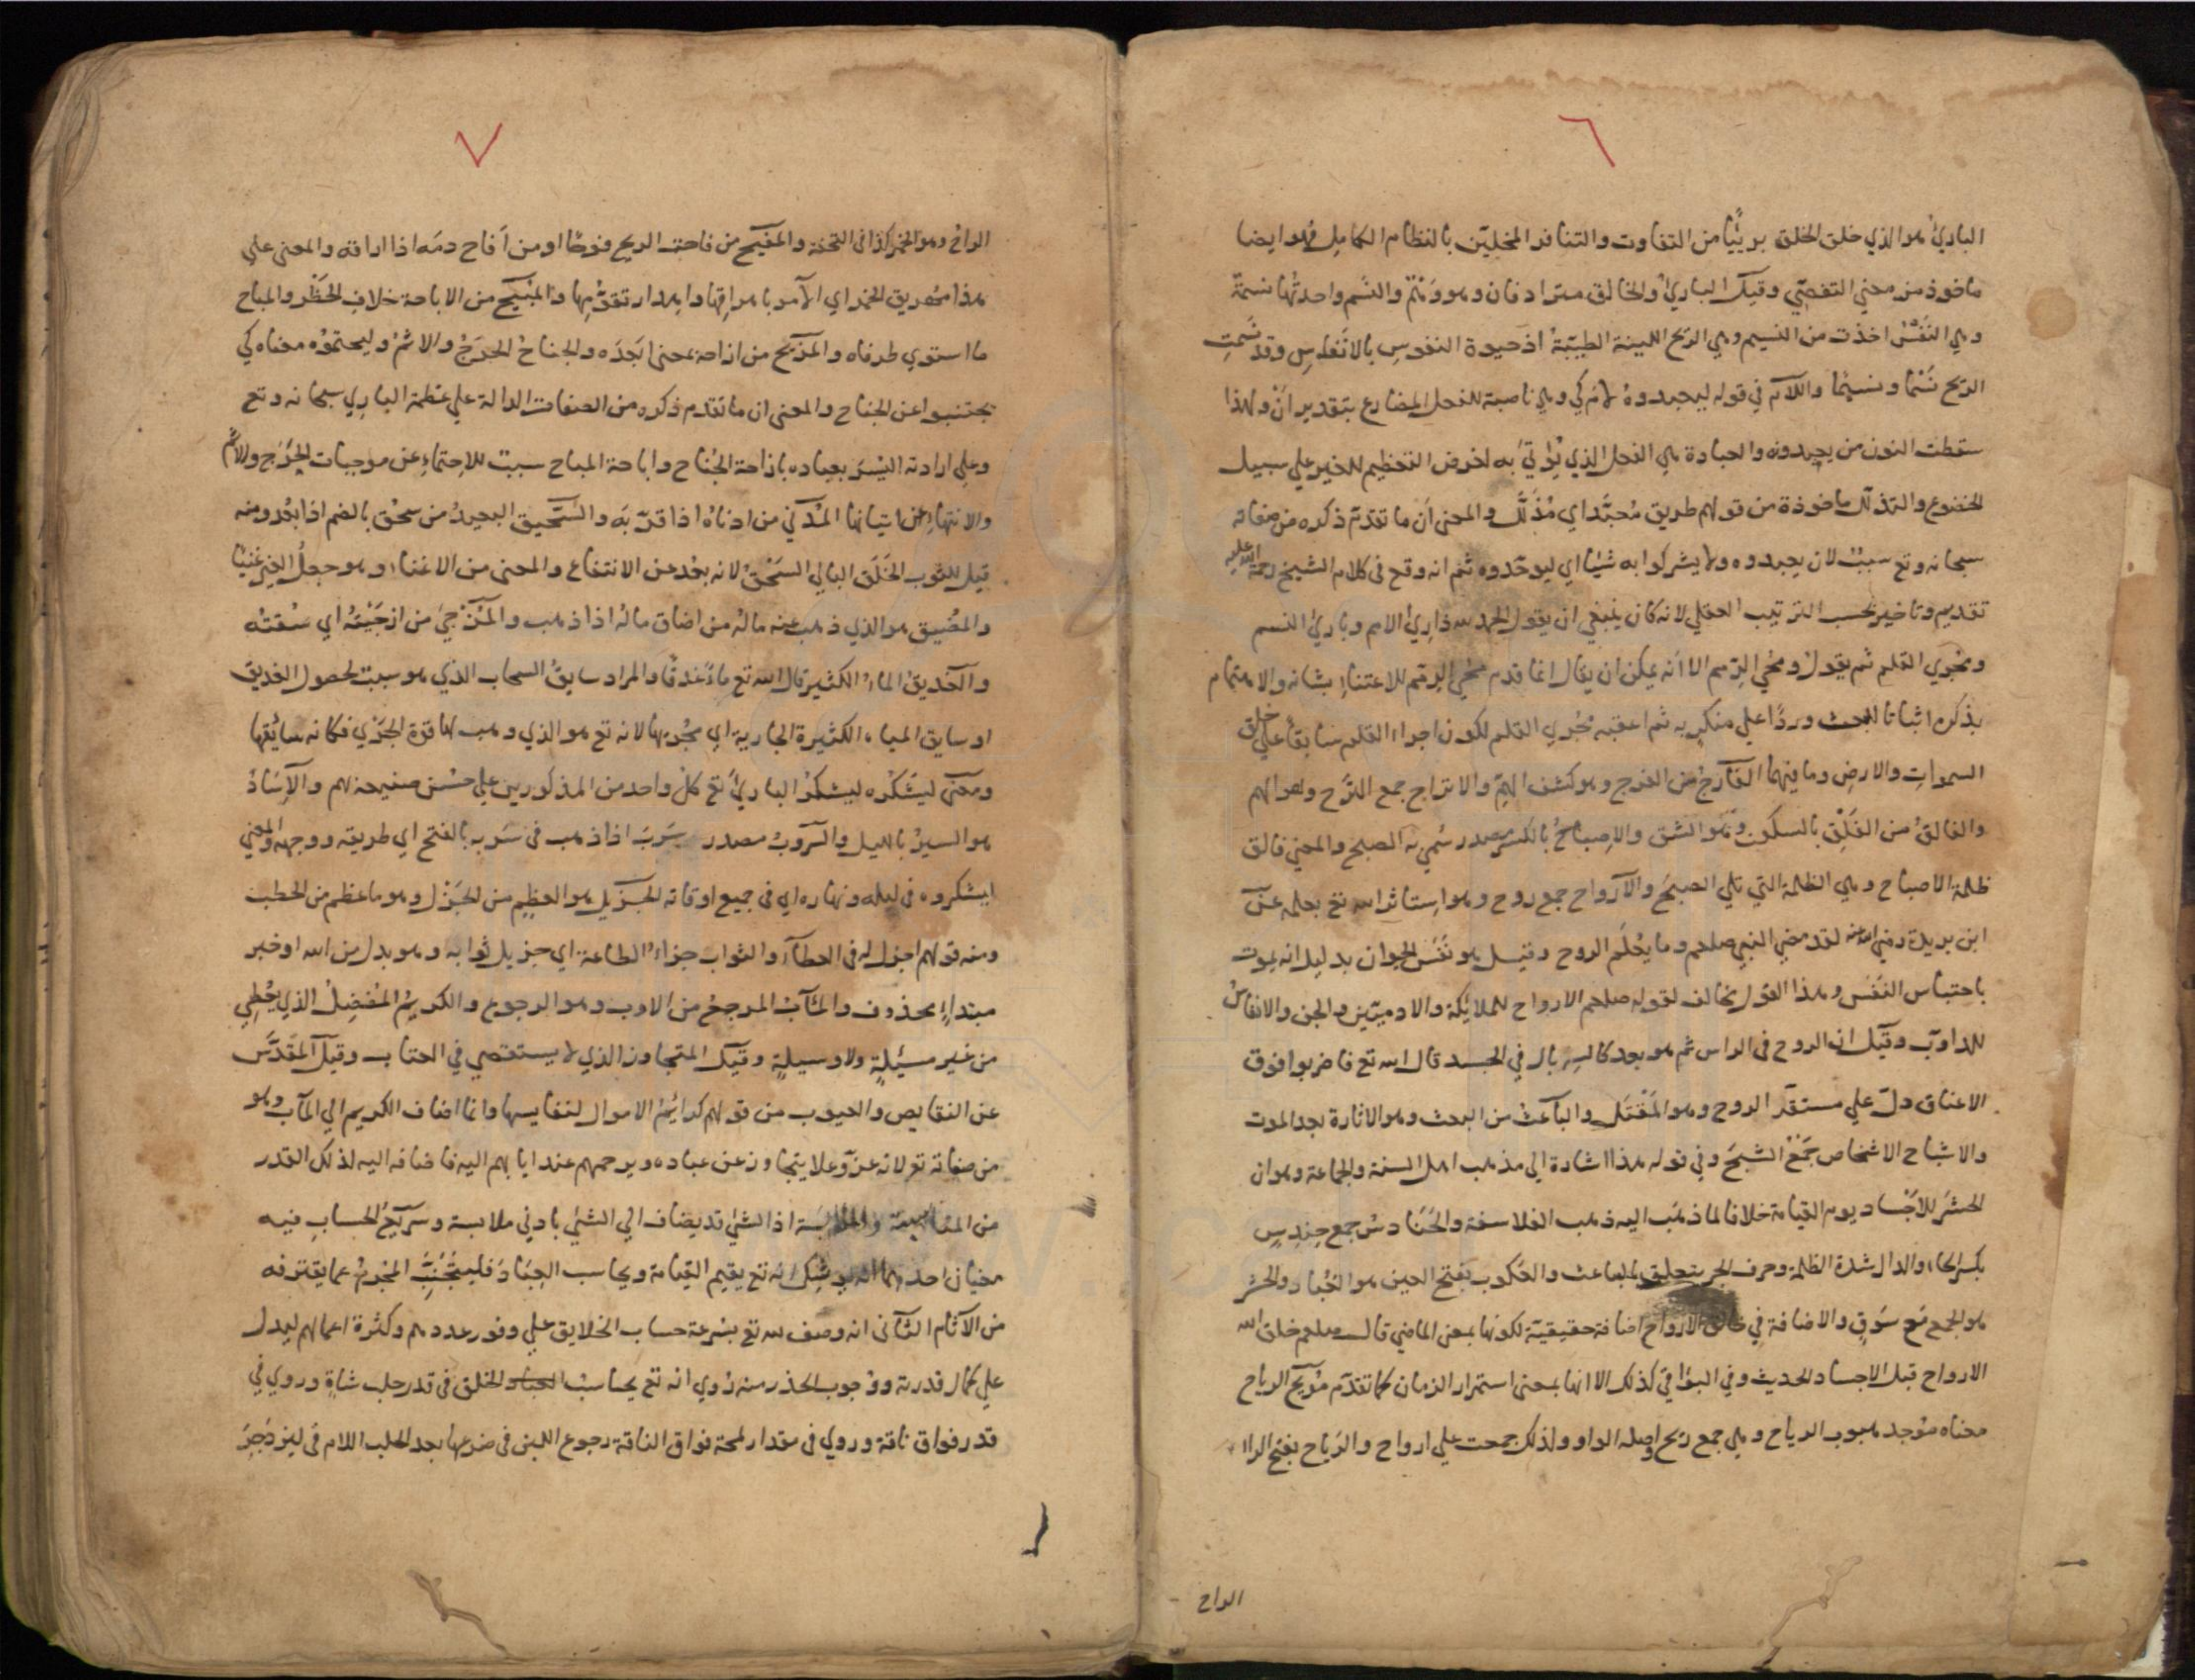 ٦
البارئ هو الذي خلق الخلق بريّا من التفاوت والتنافر المخلين بالنظام الكامل فهو ايضا
ماخوذ من معني التفصّي وقيل البارئ والخالق مترادفان وهو وَهْمٌ والنَّسَم واحدتُها نسمة
وهي النَفْسُ اخذت من النسيم وهي الريح اللينة الطيبة اذ حيوة النفوس بالانفاس وقد نَسَمت
الريح نَسْمًا ونسيمًا واللام في قوله ليعبدوهُ لام كي وهي ناصبة للفعل المضارع بتقدير اَنْ ولهذا
سقطت النون من يعبدونه والعبادة هي الفعل الذي يُؤتي به لغرض التعظيم للغير علي سبيل
الخضوع والتذلل ماخوذة من قولهم طريق مُعبَّد اي مُذَلَّل والمعني ان ما تقدّم ذكره من صفاته
سبحانه وتع سببٌ لان يعبدوه ولا يشركوا به شيئا اي ليوحّدوه ثم انه وقع في كلام الشيخ رحمة الله عليه
تقديم وتاخير بحسب الترتيب العقلي لانه كان ينبغي ان يقول الحمد لله ذارئ الامم وبارئ النسم
ومُجري القلم ثم يقول ومُحي الرِمم الا انه يمكن ان يقال انما قدم محيي الرمم للاعتناء بشانه والاهتمام
بذكره اثباتا للبعث وردًا علي منكريه ثم اعقبه مُجري القلم لكون اجراء القلم سابقا علي خلق
السموات والارض وما فيهما الفارج من الفرج وهو كشف الهمّ والاتراح جمع التَّرَح وهو الهم
والفالقُ من الفَلْق بالسكون وهو الشق والاِصباحُ بالكسر مصدر سُمي به الصبح والمعني فالق
ظلمة الاصباح وهي الظلمة التي تلي الصبحَ والارواح جمع روح وهو استاثر الله تع بعلمه عن
ابن بريدة رضي الله عنه لقد مضي النبي صلعم وما يعلم الروح وقيل هو نَفَس الحيوان بدليل انه يموت
باحتباس النَفَس وهذا القول يخالف لقوله صلعم الارواح للملائكة والادميين والجن والانفاسُ
للدوابّ وقيل ان الروح في الراس ثم هو بعد كالسربال في الجسد قال الله تع فاضربوا فوق
الاعناق دلّ علي مستقر الروح وهو المَقْتَل والباعث من البعث وهو الاثارة بعد الموت
والاشباح الاشخاص جمع الشبح وفي قوله هذا اشارة الي مذهب اهل السنة والجماعة وهو ان
الحشر للاَجْساد يوم القيامة خلافا لما ذهب اليه ذهب الفلاسفة والحَنَادسُ جمع حِنْدِسٍ
بكسر الحاء والدال شدة الظلمة وحرف الجر يتعلق بالباعث والعَكوب بفتح العين هو الغُبار والحشر
هو الجمع مَع سَوْقٍ والاضافة في خالق الارواح اضافة حقيقيّة لكونها بمعني الماضي قال صلعم خلق الله
الارواح قبل الاجساد الحديث وفي البواقي كذلك الا انها بمعني استمرار الزمان كما تقدّم مُرِيح الرياح
معناه مُوجد هبوب الرياح وهي جمع ريح واصله الواو ولذلك جمعت علي ارواح والرَياح بفتح الراء
الراح
٧
الراح وهو الخمر كذا في التحفة والمفيح من فاحت الريح فوحًا او من اَفاح دمَه اذا اراقه والمعني علي
هذا مُهريق الخمر اي الآمر باهراقها واهدار تقوُّمِها والمُبيح من الاباحة خلاف الحَظْر والمباح
ما استوي طرفاه والمزيح من ازاحه بمعني اَبعَدَه والجناحُ الحَرَجُ والاثم وليحتموْه معناه كي
يجتنبوا عن الجناح والمعني ان ما تقدم ذكره من الصفات الدالة علي عظمة الباري سبحانه وتع
وعلي ارادته اليُسْرَ بعباده بازاحة الجُناح واباحة المباح سببٌ للاِحتماءِ عن موجبات الحَرَج والاثم
والانتهاءِ عن اتيانها المُدْني من ادناهُ اذا قرّبه والسَّحِيق البعيدُ من سحُق بالضم اذا بعُد ومنه
قيل للثوب الخَلَق البالي السَحْق لانه بعُد عن الانتفاع والمغني من الاغناء وهو جعلُ الغير غنيًا
والمُضيق هو الذي ذهب عنه مالُه من اضاق مالُه اذا ذهب والمُزْجي من ازجَيْتُه اي سُقتُه
والغديقُ الماءُ الكثير قال الله تع ماءً غدقًا والمراد سابقُ السحاب الذي هو سبب لحصول الغديق
او سايق المياه الكثيرة الجارية اي مُجْرِيها لانه تع هو الذي وهب لها قوة الجَرْي فكانه سائقها
ومعني ليشكُره ليشكُرَ البارئَ تع كلُ واحد من المذكورين علي حسْن صنيعه لهم والاِسَادُ
هو السيرُ بالليل والسُروبُ مصدر سَرَبَ اذا ذهب في سَرْبه بالفتح اي طريقه ووجهه والمعني
ليشكروه في ليله ونهاره اي في جميع اوقاته الجَزيل هو العظيم من الجَزْل وهو ما عظم من الحطب
ومنه قولهم اجزل له في العطاء والثواب جزاءُ الطاعة اي جزيل ثوابه وهو بدل من الله او خبر
مبتداءٍ محذوف والمَآبُ المرجعُ من الاوب وهو الرجوع والكريمُ المُفْضِلُ الذي يُعطِي
من غير مسئلةٍ ولا وسيلةٍ وقيل المتجاوز الذي لا يستقصي في العتاب وقيل المقَدَّس
عن النقايص والعيوب من قولهم كرائمُ الاموال لنفايسها وانما اضاف الكريم الي المآب وهو
من صفاته تع لانه عزّ وعلا يتجاوز عن عباده ويرحمهم عند ايابهم اليه فاضافه اليه لذلك القدر
من الملابَسة اذ الشئ قد يضاف الي الشئ بادني ملابسة وسَريعُ الحساب فيه
معنيان احدهما انه يوشك انه تع يقيم القيامة ويحاسب العِبَادَ فليتجنّبِ المجْرِمُ عما يقترفه
من الآثام الثاني انه وصف لله تع بسُرعة حساب الخلايق علي وفور عددهم وكثرة اعمالهم ليدل
علي كمال قدرته ووُجوب الحذر منه رُوي انه تع يحاسبُ الخلق في قدر حلب شاةٍ وروي في
قدر فواق ناقة وروي في مقدار لمحة فواق الناقة رجوع اللبن في ضرعها بعد الحلب اللام في لينزجِرَ